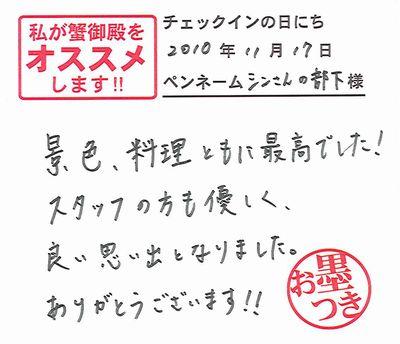 私が蟹御殿を
オススメ
します!!
チェックインの日にち
2010年11月17日
ペンネームシンさんの部下様
景色、料理ともに最高でした!
スタッフの方も優しく、
良い思い出となりました。
ありがとうございます!!
お墨
つき